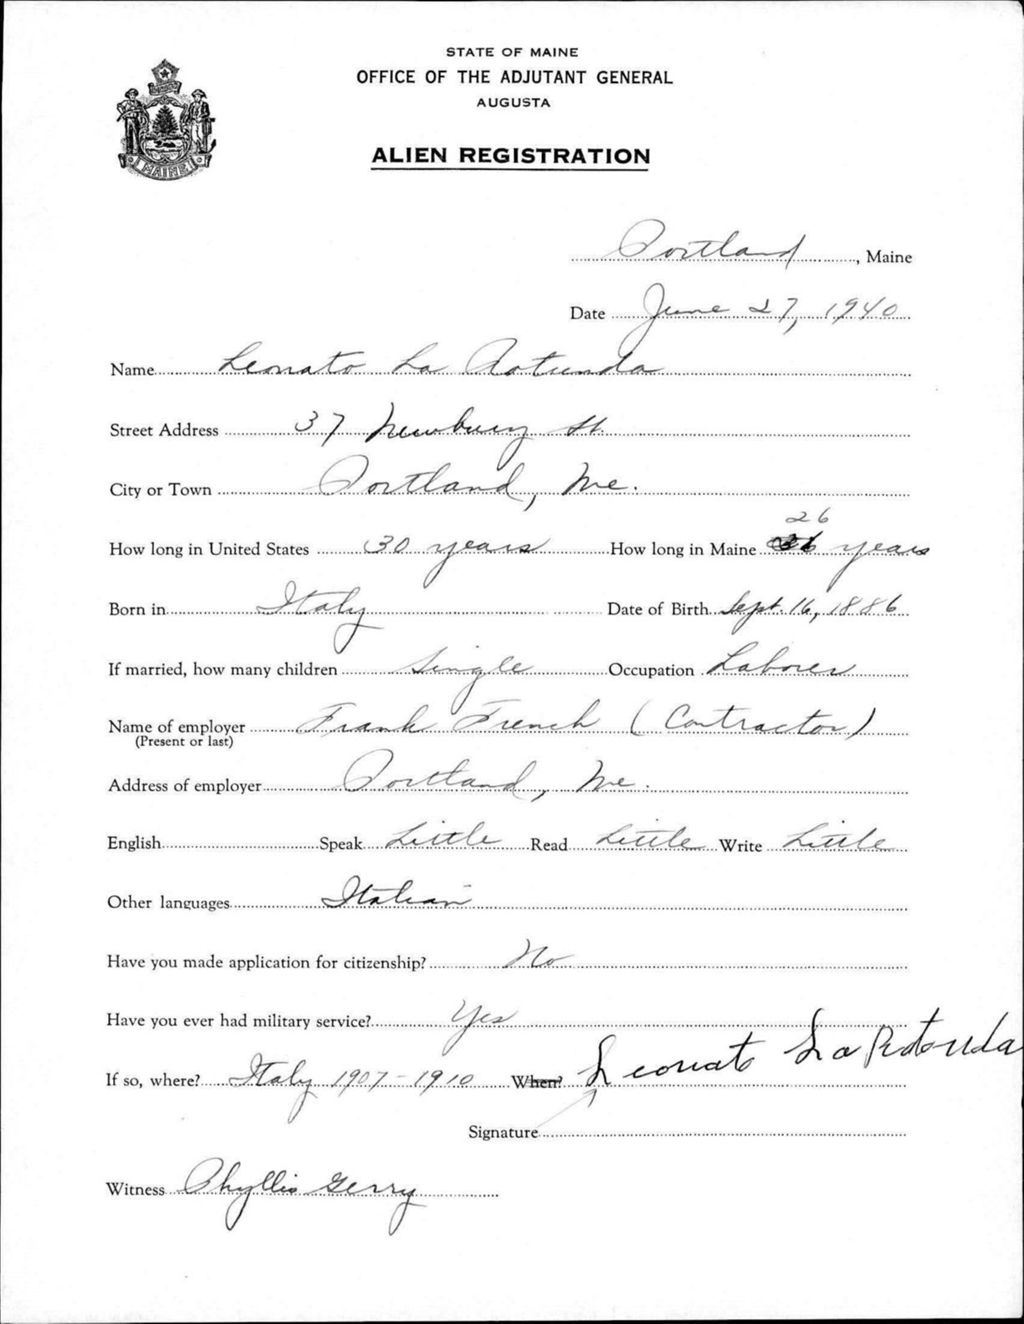 STATE OF MAINE
OFFICE OF THE ADJUTANT GENERAL
AUGUSTA
MAINE
ALIEN REGISTRATION
Portland, Maine
Date June 27, 1940
Name Leonato La Rotunda
Street Address 37 Newbury St.
City or Town Portland, Me.
26
How long in United States 30 years How long in Maine years
Born in Italy Date of Birth Sept. 16, 1886
If married, how many children Single Occupation Laborer
Name of employer Frank French (Contractor)
(Present or last)
Address of employer Portland, Me.
English Speak Little Read Little Write Little
Other languages Italian
Have you made application for citizenship? No
Have you ever had military service? Yes
If so, where? Italy 1907-1910 When? Leonato La Rotonda
Signature
Witness Phyllis Gerry